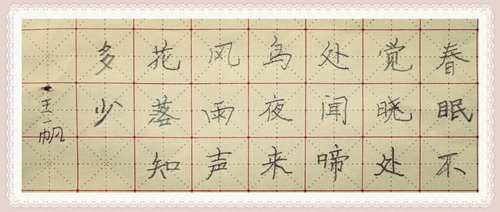 春眠不
觉晓处
处闻啼
鸟夜来
风雨声
花落知
多少
王一帆